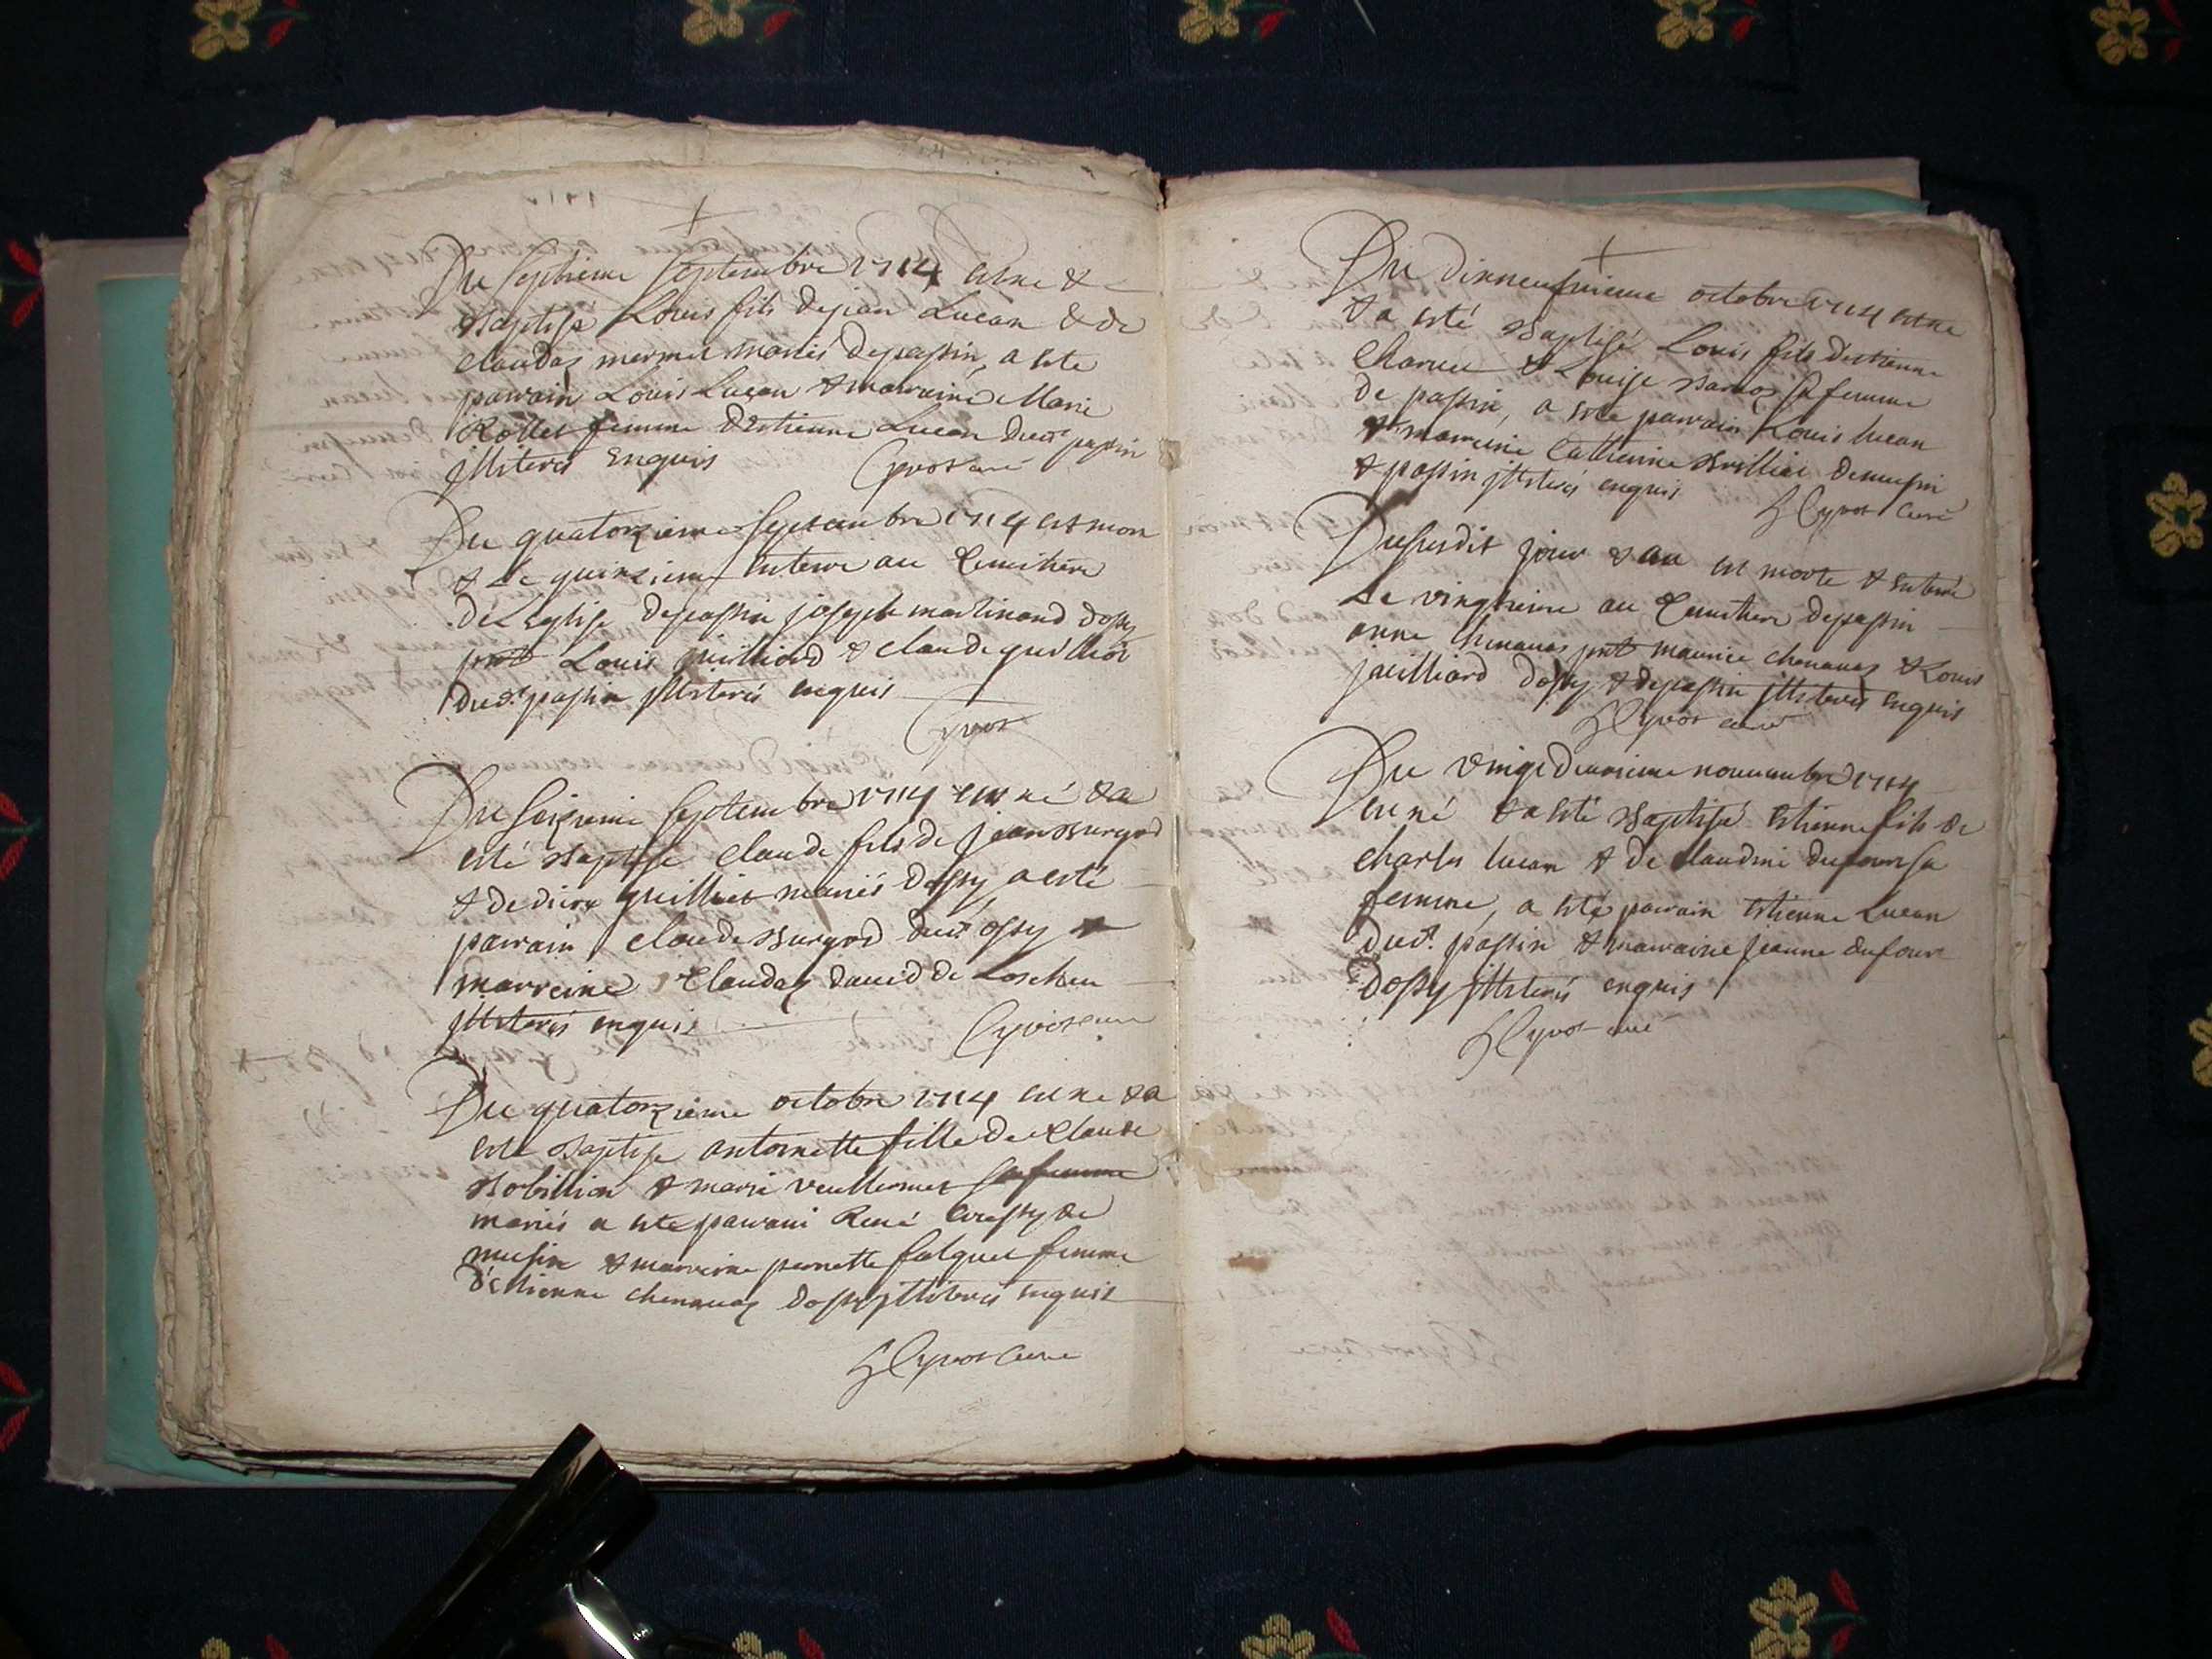 Du septieme septembre 1714 est ne &
baptise Louis fils de jean Lucan & de
claudaz mermet mariés de passin, a este
parrain Louis Lucan & marraine Marie
Rollet femme d'Estienne Lucan dud.t passin
illiterés enquis
curé
Du quatorzieme septembre 1714 est mort
& le quinzieme enterré au Cemitiere
de L'eglise de passin joseph martinand d'ossy
pnt Louis juilliard & claude
dud.t passin illiterés enquis
Du seizieme septembre 1714 est né & a
esté baptisé claude fils de jean burgod
& de mariés d'ossy a esté
parrain claude burgod dud.t ossy &
marreine Claudaz david de Lochieu
illiterés enquis
curé
Du quatorzieme octobre 1714 est ne & a
este baptise antoinette fille de Claude
& marie vuillermet sa femme
mariés a este parrain René de
musin & marreine pernette femme
d'Estienne chennuaz d'ossy illiterés enquis
curé
Du dixneufvieme octobre 1714 est ne
& a esté baptisé Louis fils d'estienne
& Louise sa femme
de passin, a este parrain Louis lucan
& marreine Catherine de musin
& passin illiterés enquis
curé
Du susdit jour & an est morte & enterré
Le vingtieme au Cemitiere de passin
anne chenauaz pnt maurice chenauaz & Louis
juilliard d'ossy & de passin illiterés enquis
curé
Du vingtdeuxieme nouuembre 1714
est né & a esté baptisé estienne fils de
charles lucan & de claudine dufour sa
femme, a esté parrain estienne Lucan
dud.t passin & marraine jeanne dufour
d'ossy illiterés enquis
curé